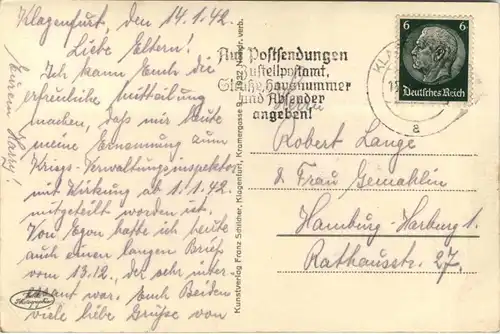 Klagenfurt, den 14.1.42.
Liebe Eltern!
Ich kann Euch die
erfreuliche Mitteilung
machen, daß mir heute
meine Ernennung zum
Kriegs-Verwaltungsinspektor
mit Wirkung ab 1.1.42
mitgeteilt worden ist.
Von Egon hatte ich heute
auch einen langen Brief
vom 13.12., der sehr inter
essant war. Euch Beiden
viele liebe Grüße von
Eurem Harry!
Kunstverlag Franz Schilcher, Klagenfurt, Kramergasse 9 1937 Nachdr. verb.
Auf Postsendungen
Zustellpostamt,
Straße, Hausnummer
und Absender
angeben!
KLAG
a
6 6
Deutsches Reich
Robert Lange
& Frau Gemahlin
Hamburg-Harburg 1.
Rathausstr. 27.